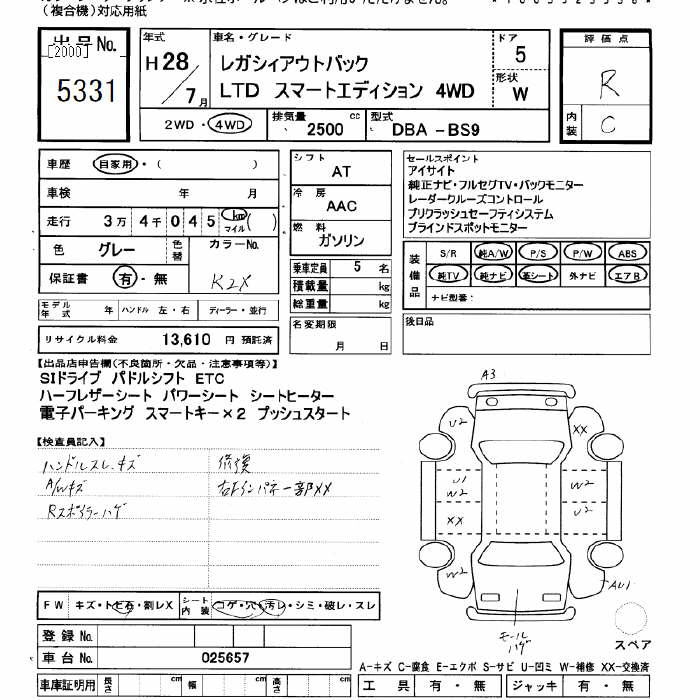 （複合機）対応用紙
出品No.
[2000]
5331
年式
H 28
／7月
車名・グレード
レガシィアウトバック
LTD スマートエディション 4WD
ドア
5
形状
W
評価点
R
内装
C
2WD・4WD
排気量
2500 cc
型式
DBA －BS9
車歴 自家用・（ ）
車検 年 月
走行 3万 4千 0 4 5 km マイル ( )
色 グレー 色替 カラーNo.
保証書 有・無 K2X
モデル年式 年 ハンドル 左・右 ディーラー・並行
リサイクル料金 13,610 円 預託済
シフト
AT
冷房
AAC
燃料
ガソリン
乗車定員 5 名
積載量 kg
総重量 kg
名変期限
月 日
セールスポイント
アイサイト
純正ナビ・フルセグTV・バックモニター
レーダークルーズコントロール
プリクラッシュセーフティシステム
ブラインドスポットモニター
装備品
S/R 純A/W P/S P/W ABS
純TV 純ナビ 革シート 外ナビ エアB
ナビ型番：
後日品
【出品店申告欄(不良箇所・欠品・注意事項等)】
SIドライブ パドルシフト ETC
ハーフレザーシート パワーシート シートヒーター
電子パーキング スマートキー×2 プッシュスタート
【検査員記入】
ハンドルスレ、キズ
A/Wキズ
Rスポイラーハゲ
修復
右ドインパネ一部XX
A3
U2
XX
U1
W2
W2
XX
U2
W2
W2
AU1
モールハゲ
スペア
FW キズ・トビ石・割レX
シート内装 コゲ・穴・汚レ・シミ・破レ・スレ
登録No.
車台No. 025657
車庫証明用 長さ cm 幅 cm 高さ cm
A-キズ C-腐食 E-エクボ S-サビ U-凹ミ W-補修 XX-交換済
工具 有・無 ジャッキ 有・無